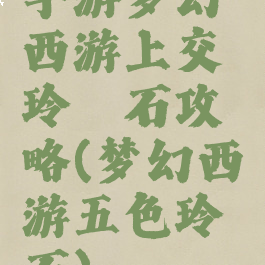 手游梦幻
西游上交
玲 石攻
略(梦幻西
游五色玲
石)